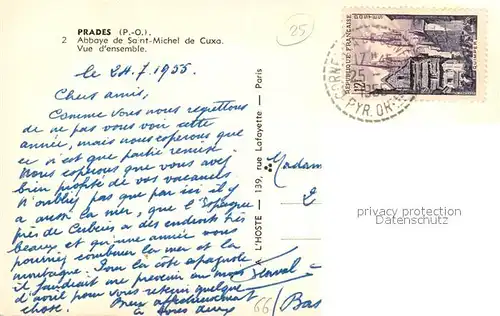 PRADES (P.-O.).
2 Abbaye de Saint-Michel de Cuxa.
Vue d'ensemble.
25
le 24.7.1955
Chers amis,
Comme vous nous regrettons
de ne pas vous voir cette
année, mais nous espérons que
ce n'est que partie remise
Nous espérons que vous avez
bien profité de vos vacances
N'oubliez pas que par ici il y
a aussi la mer, que l'Espagne
près de Cerbère a des endroits très
beaux et qu'une année vous
pourriez combiner la mer et la
montagne. Pour la côte espagnole
il faudrait me prévenir au mois
d'avril pour vous retenir quelque
chose. Bien affectueusement
à vous deux
A L'HOSTE — 139, rue Lafayette — Paris
RÉPUBLIQUE FRANÇAISE
POSTES
12F
17 H
25
PYR. OR.
Madam
2
66/Bas
privacy protection
Datenschutz